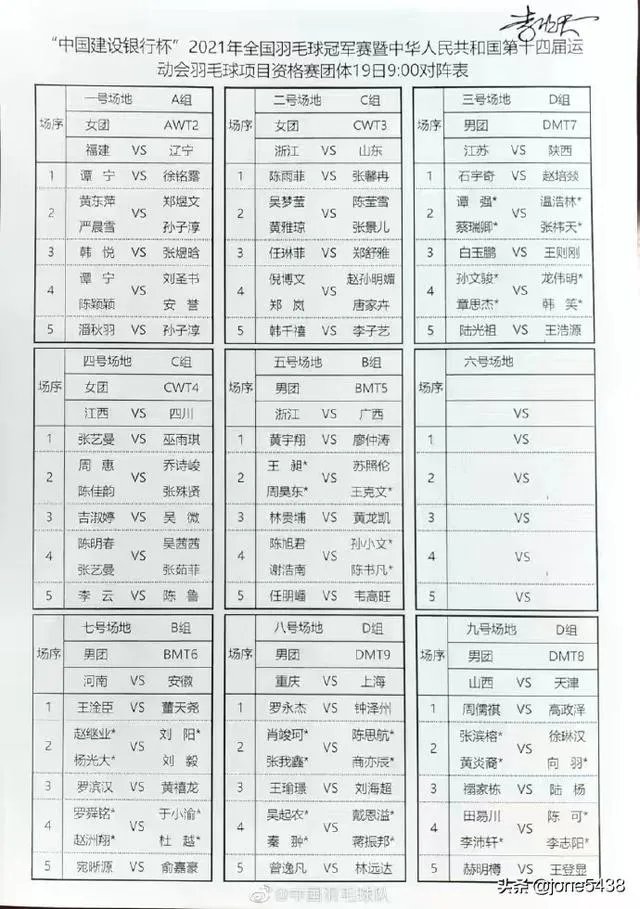 “中国建设银行杯”2021年全国羽毛球冠军赛暨中华人民共和国第十四届运
动会羽毛球项目资格赛团体19日9:00对阵表
场序 一号场地 A组
女团 AWT2
福建 VS 辽宁
1 谭宁 VS 徐铭露
2 黄东萍 严晨雪 VS 郑煜文 孙子淳
3 韩悦 VS 张煜晗
4 谭宁 陈颖颖 VS 刘圣书 安誉
5 潘秋羽 VS 孙子淳
场序 二号场地 C组
女团 CWT3
浙江 VS 山东
1 陈雨菲 VS 张馨冉
2 吴梦莹 黄雅琼 VS 陈莹雪 张景儿
3 任琳菲 VS 郑舒雅
4 倪博文 郑岚 VS 赵孙明媚 唐家卉
5 韩千禧 VS 李子艺
场序 三号场地 D组
男团 DMT7
江苏 VS 陕西
1 石宇奇 VS 赵培燚
2 谭强* 蔡瑞卿* VS 温浩林* 张祎天*
3 白玉鹏 VS 王则刚
4 孙文骏* 章思杰* VS 龙伟明* 韩笑*
5 陆光祖 VS 王浩源
场序 四号场地 C组
女团 CWT4
江西 VS 四川
1 张艺曼 VS 巫雨琪
2 周惠 陈佳韵 VS 乔诗峻 张殊贤
3 吉淑婷 VS 吴微
4 陈明春 张艺曼 VS 吴茜茜 张茹菲
5 李云 VS 陈鲁
场序 五号场地 B组
男团 BMT5
浙江 VS 广西
1 黄宇翔 VS 廖仲涛
2 王昶* 周昊东* VS 苏照伦 王克文*
3 林贵埔 VS 黄龙凯
4 陈旭君 谢浩南 VS 孙小文* 陈书凡*
5 任朋嶓 VS 韦高旺
场序 六号场地
VS
1 VS
2 VS
3 VS
4 VS
5 VS
场序 七号场地 B组
男团 BMT6
河南 VS 安徽
1 王淦臣 VS 董天尧
2 赵继业* 杨光大* VS 刘阳* 刘毅
3 罗滨汉 VS 黄禧龙
4 罗舜铭* 赵洲翔* VS 于小渝* 杜越*
5 宛晰源 VS 俞嘉豪
场序 八号场地 D组
男团 DMT9
重庆 VS 上海
1 罗永杰 VS 钟泽州
2 肖竣珂* 张我鑫* VS 陈思航* 商亦辰*
3 王瑜璟 VS 刘海超
4 吴起农* 秦翀* VS 戴恩溢* 蒋振邦*
5 曾逸凡 VS 林远达
场序 九号场地 D组
男团 DMT8
山西 VS 天津
1 周儒祺 VS 高政泽
2 张滨榕* 黄炎裔* VS 徐琳汉 向羽*
3 禤家栋 VS 陆杨
4 田易川 李沛轩* VS 陈可* 李志阳*
5 赫明樽 VS 王登显
@中国羽毛球队
头条 @jone5438